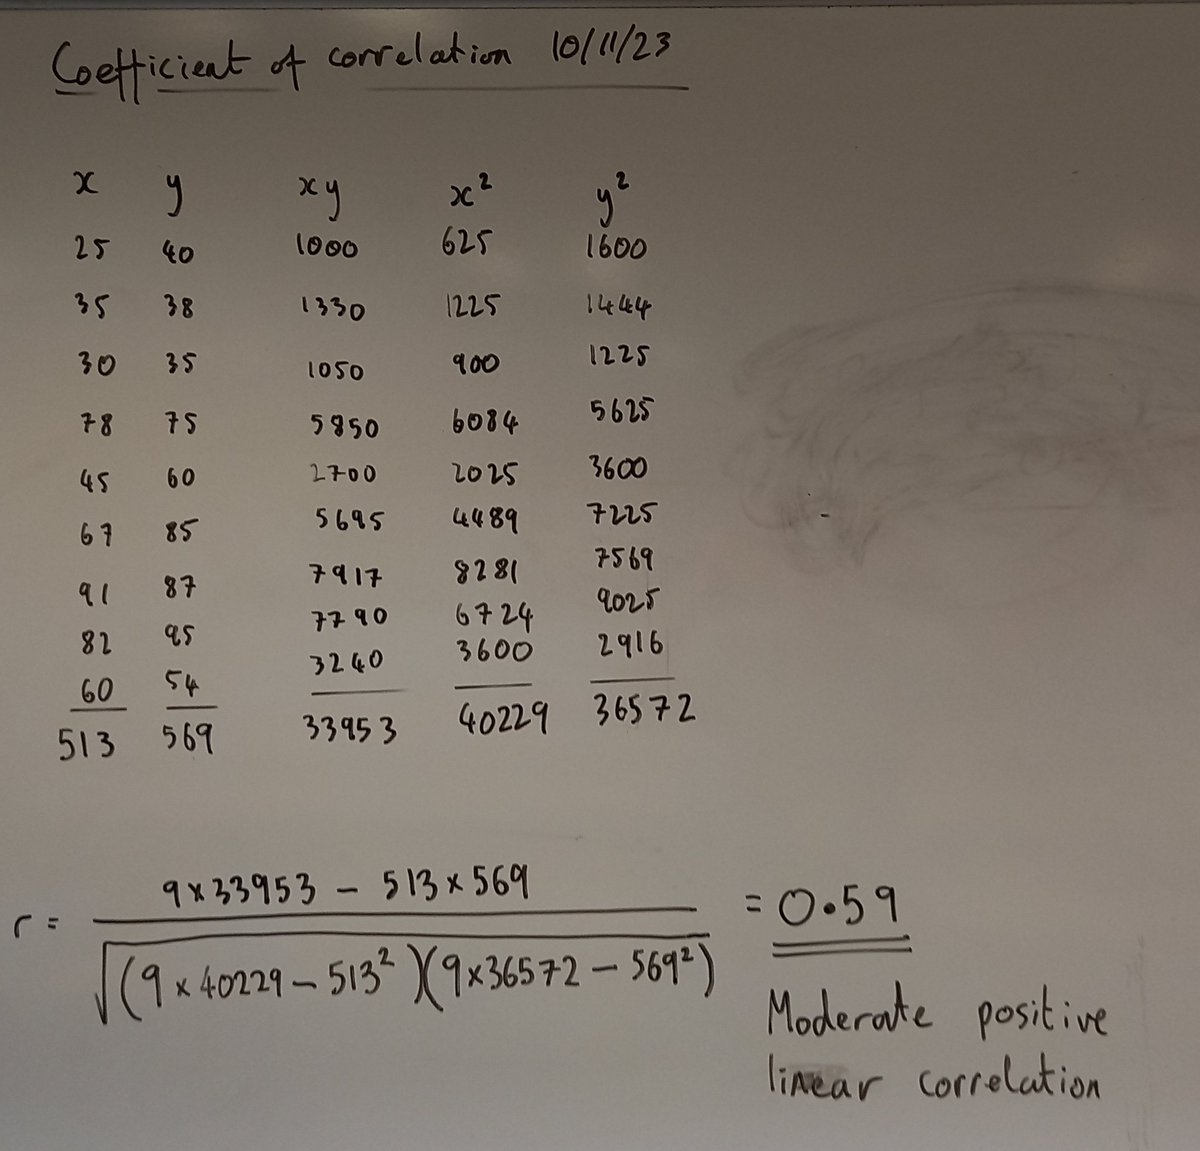 Coefficient of correlation 10/11/23
x y xy x² y²
25 40 1000 625 1600
35 38 1330 1225 1444
30 35 1050 900 1225
78 75 5850 6084 5625
45 60 2700 2025 3600
67 85 5695 4489 7225
91 87 7917 8281 7569
82 95 7790 6724 9025
60 54 3240 3600 2916
513 569 33953 40229 36572
r = 9×33953 - 513×569 / √(9×40229 - 513²)(9×36572 - 569²) = 0.59
Moderate positive
linear correlation